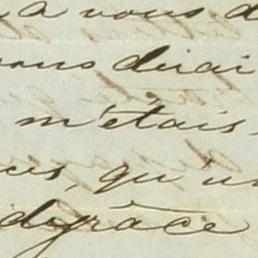 a vous d
vous dirai
m'étais
ces, qu'u
disgrâce